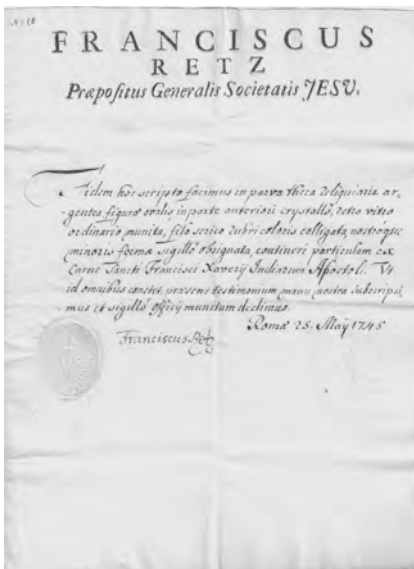 FRANCISCUS
RETZ
Præpositus Generalis Societatis JESU.
Fidem hoc scripto facimus in parva theca Reliquiaria ar-
gentea figuræ ovalis in parte anteriori crystallô, retro vitro
ordinario munita, filo serico rubri coloris colligata, nostróque
minoris formæ sigillô obsignata, contineri particulam ex
Carne Sancti Francisci Xaverij Indiarum Apostoli. Ut
id omnibus constet, præsens testimonium manu nostra subscripsi-
mus et sigillô officij munitum dedimus.
Romæ 25. Maÿ 1745
Franciscus Retz